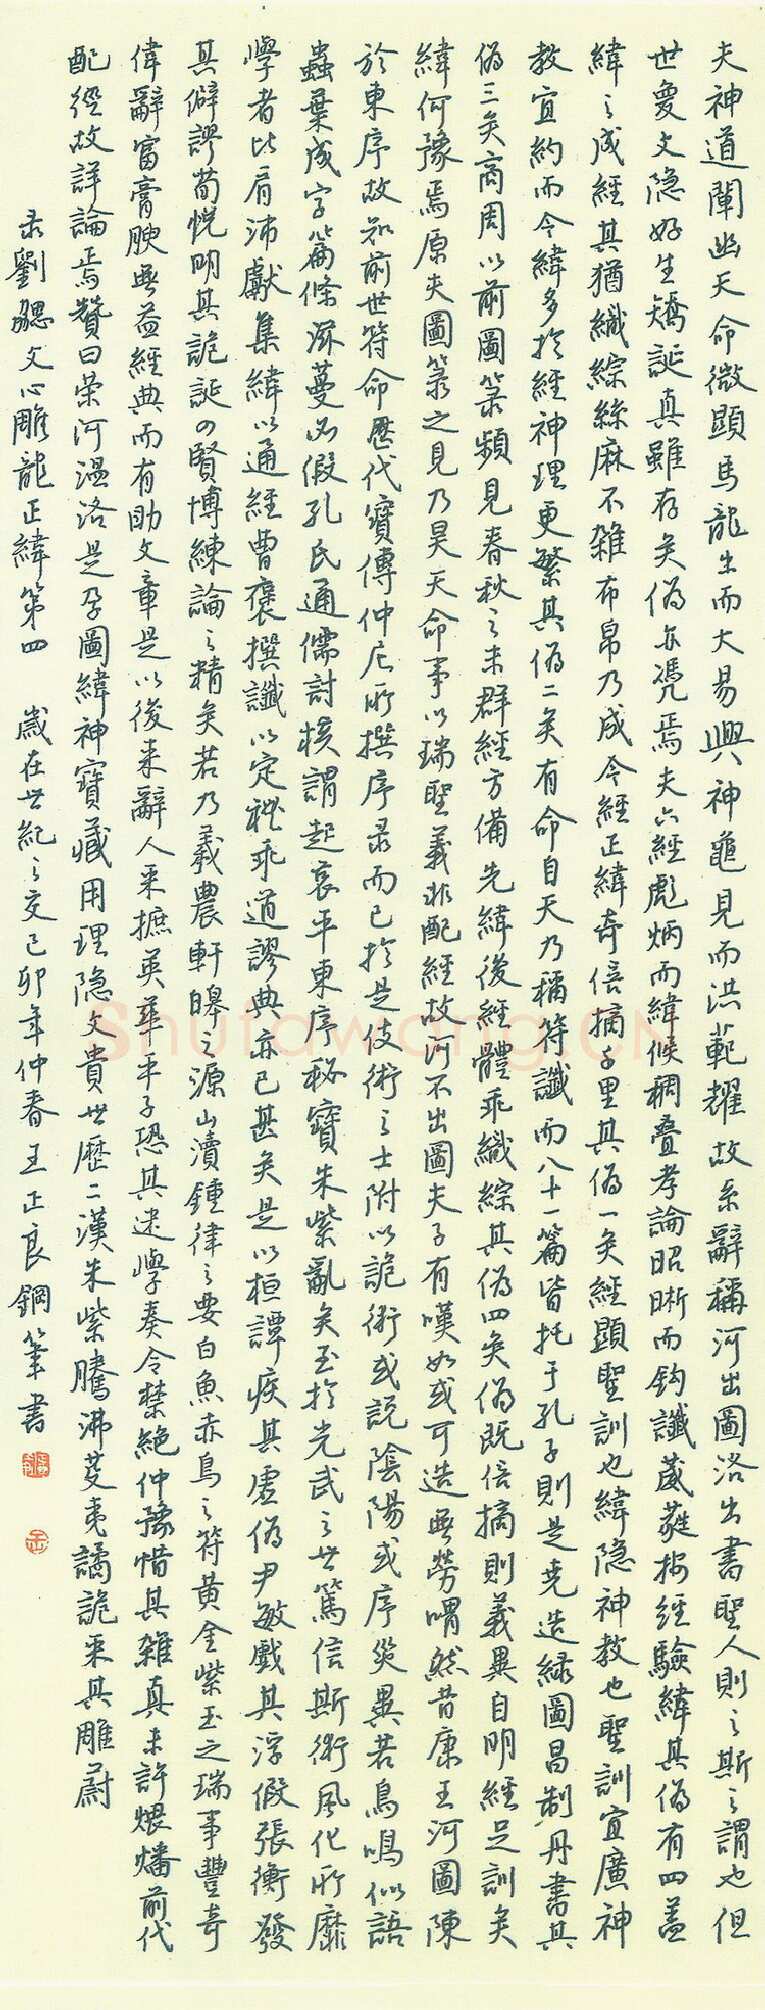 夫神道闡幽天命微顯馬龍出而大易興神龜見而洪範耀故系辭稱河出圖洛出書聖人則之斯之謂也但
世夐文隐好生矯誕真雖存矣偽亦凭焉夫六經彪炳而緯候稠叠孝論昭晰而鈎讖葳蕤按經驗緯其偽有四蓋
緯之成經其猶織綜絲麻不雜布帛乃成今經正緯奇倍摘千里其偽一矣經顯聖訓也緯隐神教也聖訓宜廣神
教宜約而今緯多於經神理更繁其偽二矣有命自天乃稱符讖而八十一篇皆托于孔子則是堯造緑圖昌制丹書其
偽三矣商周以前圖箓頻見春秋之末群經方備先緯後經體乖織綜其偽四矣偽既倍摘則義異自明經足訓矣
緯何豫焉原夫圖箓之見乃昊天命事以瑞聖義非配經故河不出圖夫子有嘆如或可造無勞喟然昔康王河圖陳
於東序故知前世符命歷代寶傳仲尼所撰序录而已於是伎術之士附以詭術或説陰陽或序災異若鳥鳴似語
蟲葉成字篇條滋蔓必假孔氏通儒討核謂起哀平東序秘寶朱紫亂矣至於光武之世篤信斯術風化所靡
學者比肩沛獻集緯以通經曹褒撰讖以定禮乖道謬典亦已甚矣是以桓譚疾其虚偽尹敏戲其浮假張衡發
其僻謬荀悦明其詭誕四賢博練論之精矣若乃羲農軒皞之源山瀆鍾律之要白魚赤鳥之符黄金紫玉之瑞事豐奇
偉辭富膏腴無益經典而有助文章是以後來辭人采摭英華平子恐其迷學奏令禁絶仲豫惜其雜真未許煨燔前代
配經故詳論焉贊曰榮河温洛是孕圖緯神寶藏用理隐文貴世歷二漢朱紫騰沸芟夷譎詭采其雕蔚
录劉勰文心雕龍正緯第四 歲在世紀之交己卯年仲春王正良鋼筆書
Shufawang.CN